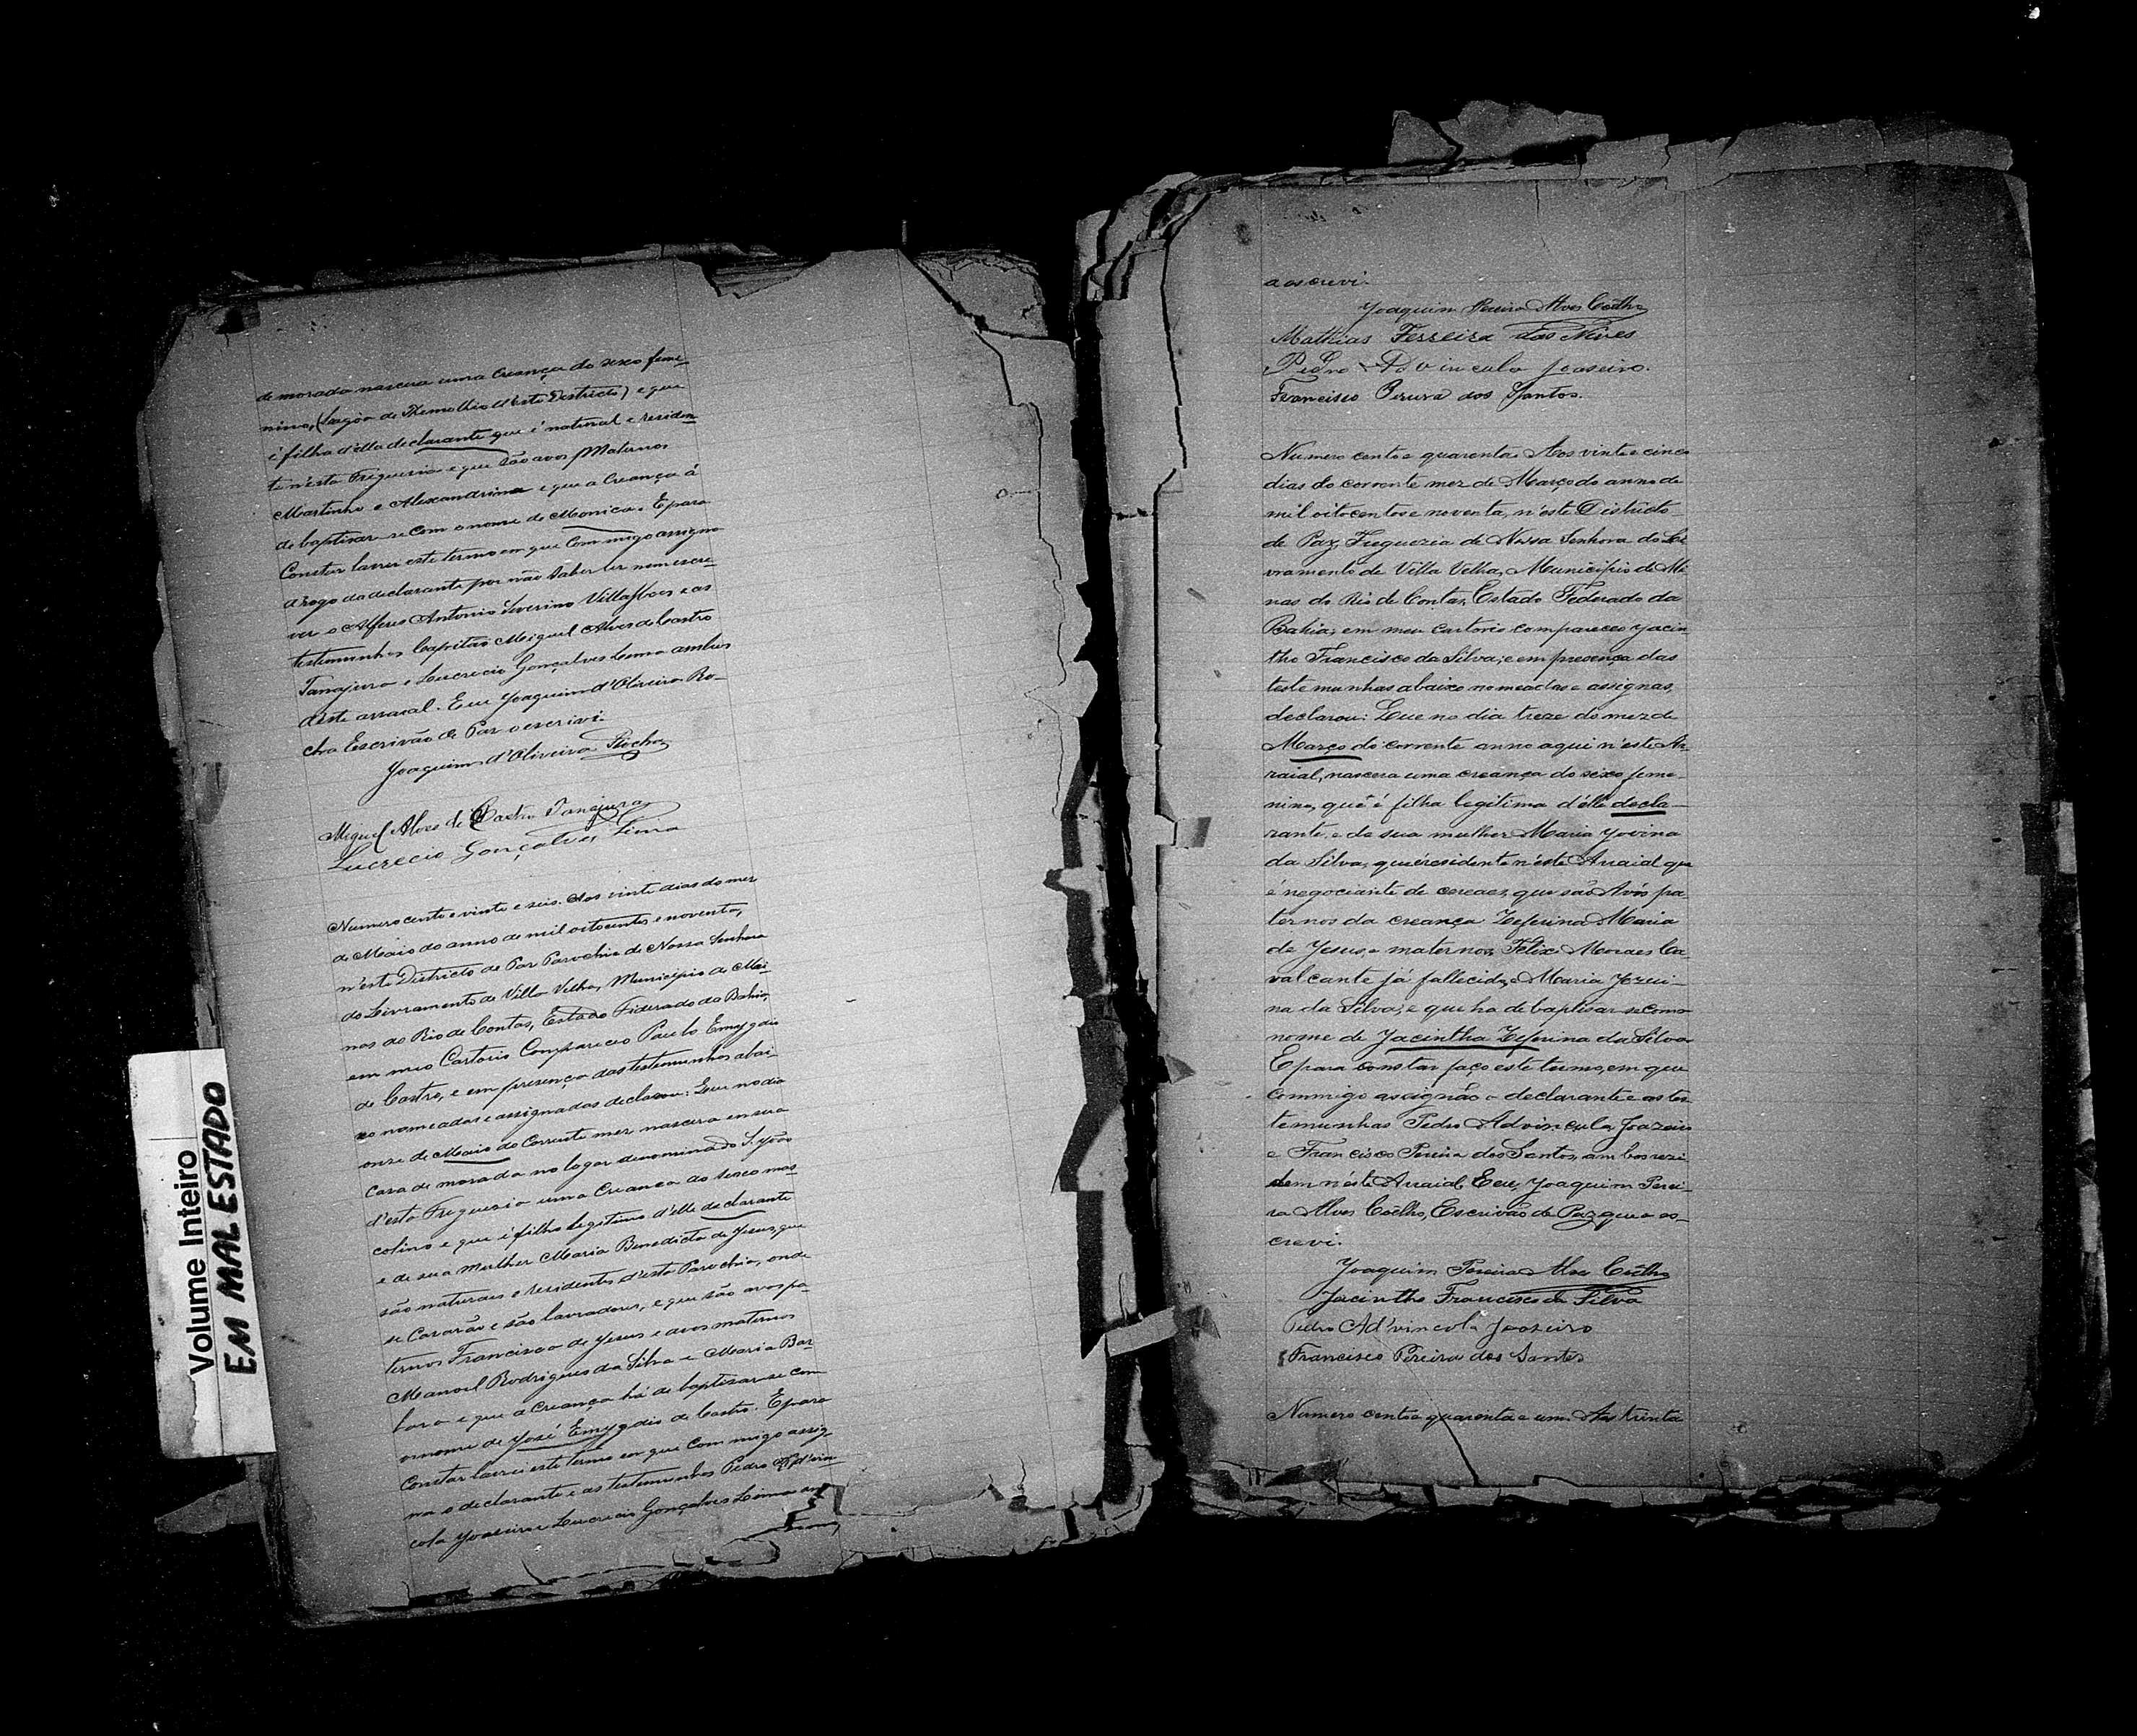 de morada nascera uma creança do sexo feme-
nino, (Lagôa de Themothio d'este Districto) e que
é filha d'ella declarante que é natural e residen-
te n'esta Freguesia e que são avos Maternos
Martinho e Alexandrina e que a Creança á
de baptisar-se com o nome de Monica. E para
Constar lavrei este termo em que Commigo assigna
a rogo da declarante por não saber ler nem escre-
ver o Alferes Antonio Severino Villasbôas e as
testimunhas Capitão Miguel Alves de Castro
Tanajura e Lucrecio Gonçalves Lima ambos
d'este arraial. Eu Joaquim d'Oliveira Ro-
cha Escrivão de Paz o escrivi.
Joaquim d'Oliveira Rocha
Miguel Alves de Castro Tanajura
Lucrecio Gonçalves Lima
Numero cento e vinte e seis. Aos vinte dias do mez
de Maio do anno de mil oitocentos e noventa,
n'este Districto de Paz Parochia de Nossa Senhora
do Livramento de Villa Velha, Municipio de Mi-
nas do Rio de Contas, Estado Federado da Bahia,
em meo Cartorio Compareceo Paulo Emygdio
de Castro, e em presença das testimunhas abai-
xo nomeadas e assignadas declarou: Que no dia
onze de Maio do Corrente mez nascera em sua
casa de morada no logar denominado S. João
d'esta Freguesia uma Creança do sexo mas-
colino e que é filho legitimo d'elle declarante
e de sua mulher Maria Benedicta de Jesus, que
são naturaes e residentes d'esta Parochia, onde
se Casarão e são lavradores, e que são avos pa-
ternos Francisca de Jesus e avos maternos
Manoel Rodrigues da Silva e Maria Bar-
bara e que a Creança há de baptisar-se com
o nome de José Emygdio de Castro. E para
Constar lavrei este termo em que Com migo assig-
na o declarante e as testimunhas Pedro Ad'vin-
cola Joaseiro e Lucrecio Gonçalves Lima
Volume Inteiro
EM MAL ESTADO
a escrevi.
Joaquim Pereira Alves Coêlho
Mathias Ferreira das Neves
Pedro Advincula Joaseiro.
Francisco Pereira dos Santos.
Numero cento e quarenta. Aos vinte e cinco
dias do corrente mez de Março do anno de
mil oitocentos e noventa, n'este Districto
de Paz, Freguezia de Nossa Senhora do Li-
vramento de Villa Velha, Municipio de Mi-
nas do Rio de Contas, Estado Federado da
Bahia; em meu Cartorio compareceo Jacin-
tho Francisco da Silva; e em presença das
testemunhas abaixo nomeadas e assignas,
declarou: Que no dia treze do mez de
Março do corrente anno aqui n'este Ar-
raial, nascera uma creança do sexo feme-
nino, que é filha legitima d'élle decla-
rante, e da sua mulher Maria Jovina
da Silva, que é residente n'este Arraial que
é negociante de cereaes, que são Avós pa-
ternos da creança Zeferina Maria
de Jesus, e maternos Felix Moraes Ca-
valcante já fallecido, Maria Jezui-
na da Silva; e que ha de baptisar-se com o
nome de Jacintha Zeferina da Silva
E para constar faço este termo, em que
commigo assignão o declarante e as tes-
temunhas Pedro Advincula Joazeiro
e Francisco Pereira dos Santos, ambos rezi-
dem n'éste Arraial. Eeu, Joaquim Perei-
ra Alves Coêlho, Escrivão de Paz que a es-
crevi.
Joaquim Pereira Alves Coêlho
Jacintho Francisco da Silva
Pedro Ad'vincola Joazeiro
Francisco Pereira dos Santos
Numero cento e quarenta e um. Aos trinta